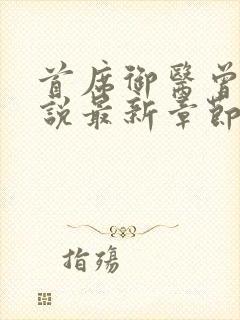 首席御醫曾
說最新章節
指殤